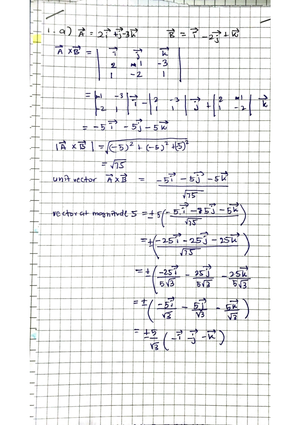 1. a) A⃗ = 2i⃗ + j⃗ - 3k⃗ B⃗ = i⃗ - 2j⃗ + k⃗
A⃗ × B⃗ = | i⃗ j⃗ k⃗ |
| 2 1 -3 |
| 1 -2 1 |
= | 1 -3 | i⃗ - | 2 -3 | j⃗ + | 2 1 | k⃗
| -2 1 | | 1 1 | | 1 -2 |
= -5i⃗ - 5j⃗ - 5k⃗
|A⃗ × B⃗| = √(-5)² + (-5)² + (5)²
= √75
unit vector A⃗ × B⃗ = -5i⃗ - 5j⃗ - 5k⃗
√75
vector at magnitude 5 = ±5(-5i⃗ - 5j⃗ - 5k⃗
√75)
= ±(-25i⃗ - 25j⃗ - 25k⃗
√75)
= ±(-25i⃗ - 25j⃗ - 25k⃗
5√3 5√3 5√3)
= ±(-5i⃗ - 5j⃗ - 5k⃗
√3 √3 √3)
= ±5 (-i⃗ j⃗ - k⃗)
√3